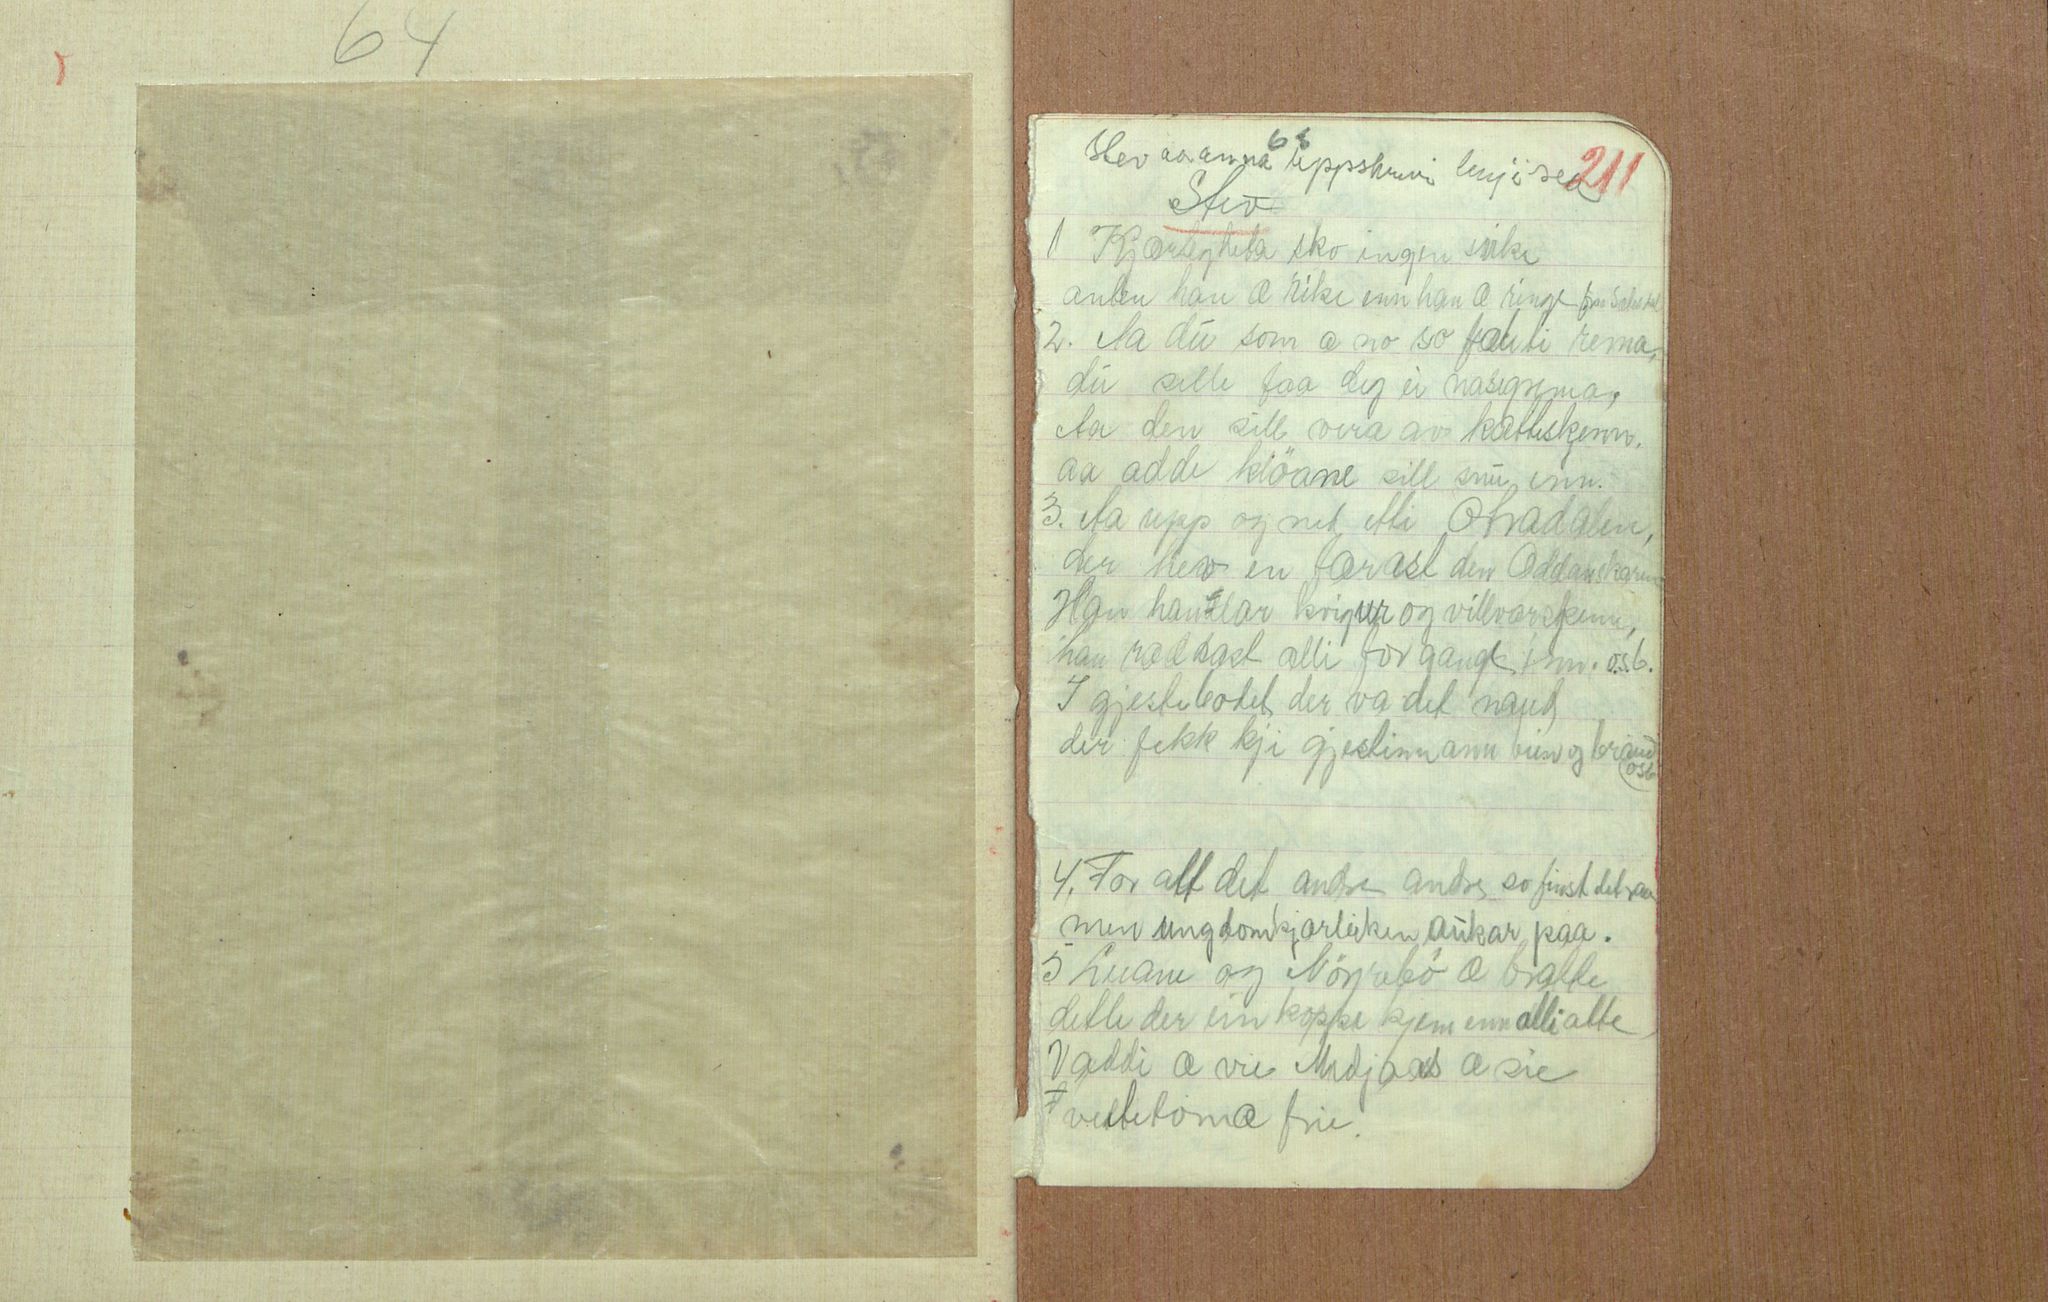 64
Stev aa anna uppskrivi
211
Stev
1 Kjærlegheta sko ingen svike
anten han æ rike enn han æ ringe
2. Aa du som æ no so fæuti rema,
du sille faa deg ei nasegrma,
Aa den sill vera av katteskjenn,
aa adde klöane sill snu inn.
3. Aa upp og ned etti Otradalen,
der hev en farast den Oddanskaren
Han handlar kvigur og villvorskjinn,
han ræddast alli for gange inn. o.s.b.
I gjestebodet der va det naud,
der fekk kji gjestinn ann vien og braud
osb
4. For alt det andre andre so finst det raa
men ungdomkjærleiken aukar paa.
5 og Nörjebö æ bratte
dette der ein koppe kjem enn alli atte
Væddi æ vie æ sie
vestetoma frie.